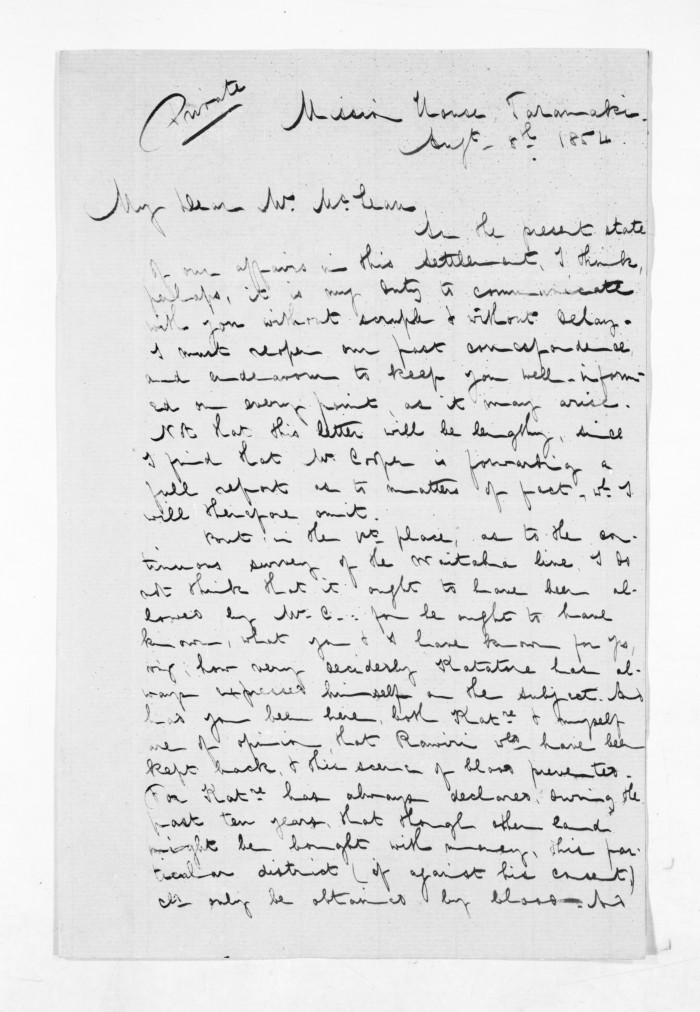 Private
Mission House, Taranaki.
Augt. 8th. 1854.
My Dear Mr. McLean,
In the present state
of our affairs in this settlement, I think,
perhaps, it is my duty to communicate
with you without scruple & without delay.
I must reopen our past correspondence,
and endeavour to keep you well-inform-
ed on every point, as it may arise.
Not that this letter will be lengthy, since
I find that Mr. Cooper is forwarding a
full report as to matters of fact, wh. I
will therefore omit.
But in the 1st. place, as to the con-
tinuous survey of the line, I do
not think that it ought to have been al-
lowed by Mr. C.. for he ought to have
known, what you & I have known for yrs,
viz; how very decidedly Katatore has al-
ways expressed himself on the subject. And
had you been here, both Katre. & myself
are of opinion, that Rawiri wld. have been
kept back, & this scene of blood prevented.
For Katre. has always declared, during the
past ten years, that though other land
might be bought with money, this par-
ticular district (if against his consent)
cld. only be obtained by blood. And